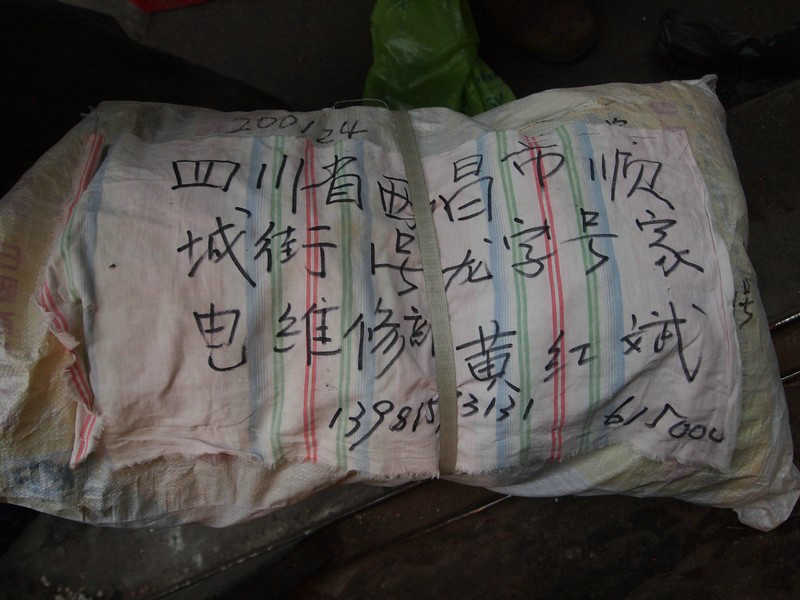 200124
四川省西昌市顺
城街号龙字号家
电维修部黄红斌
615000